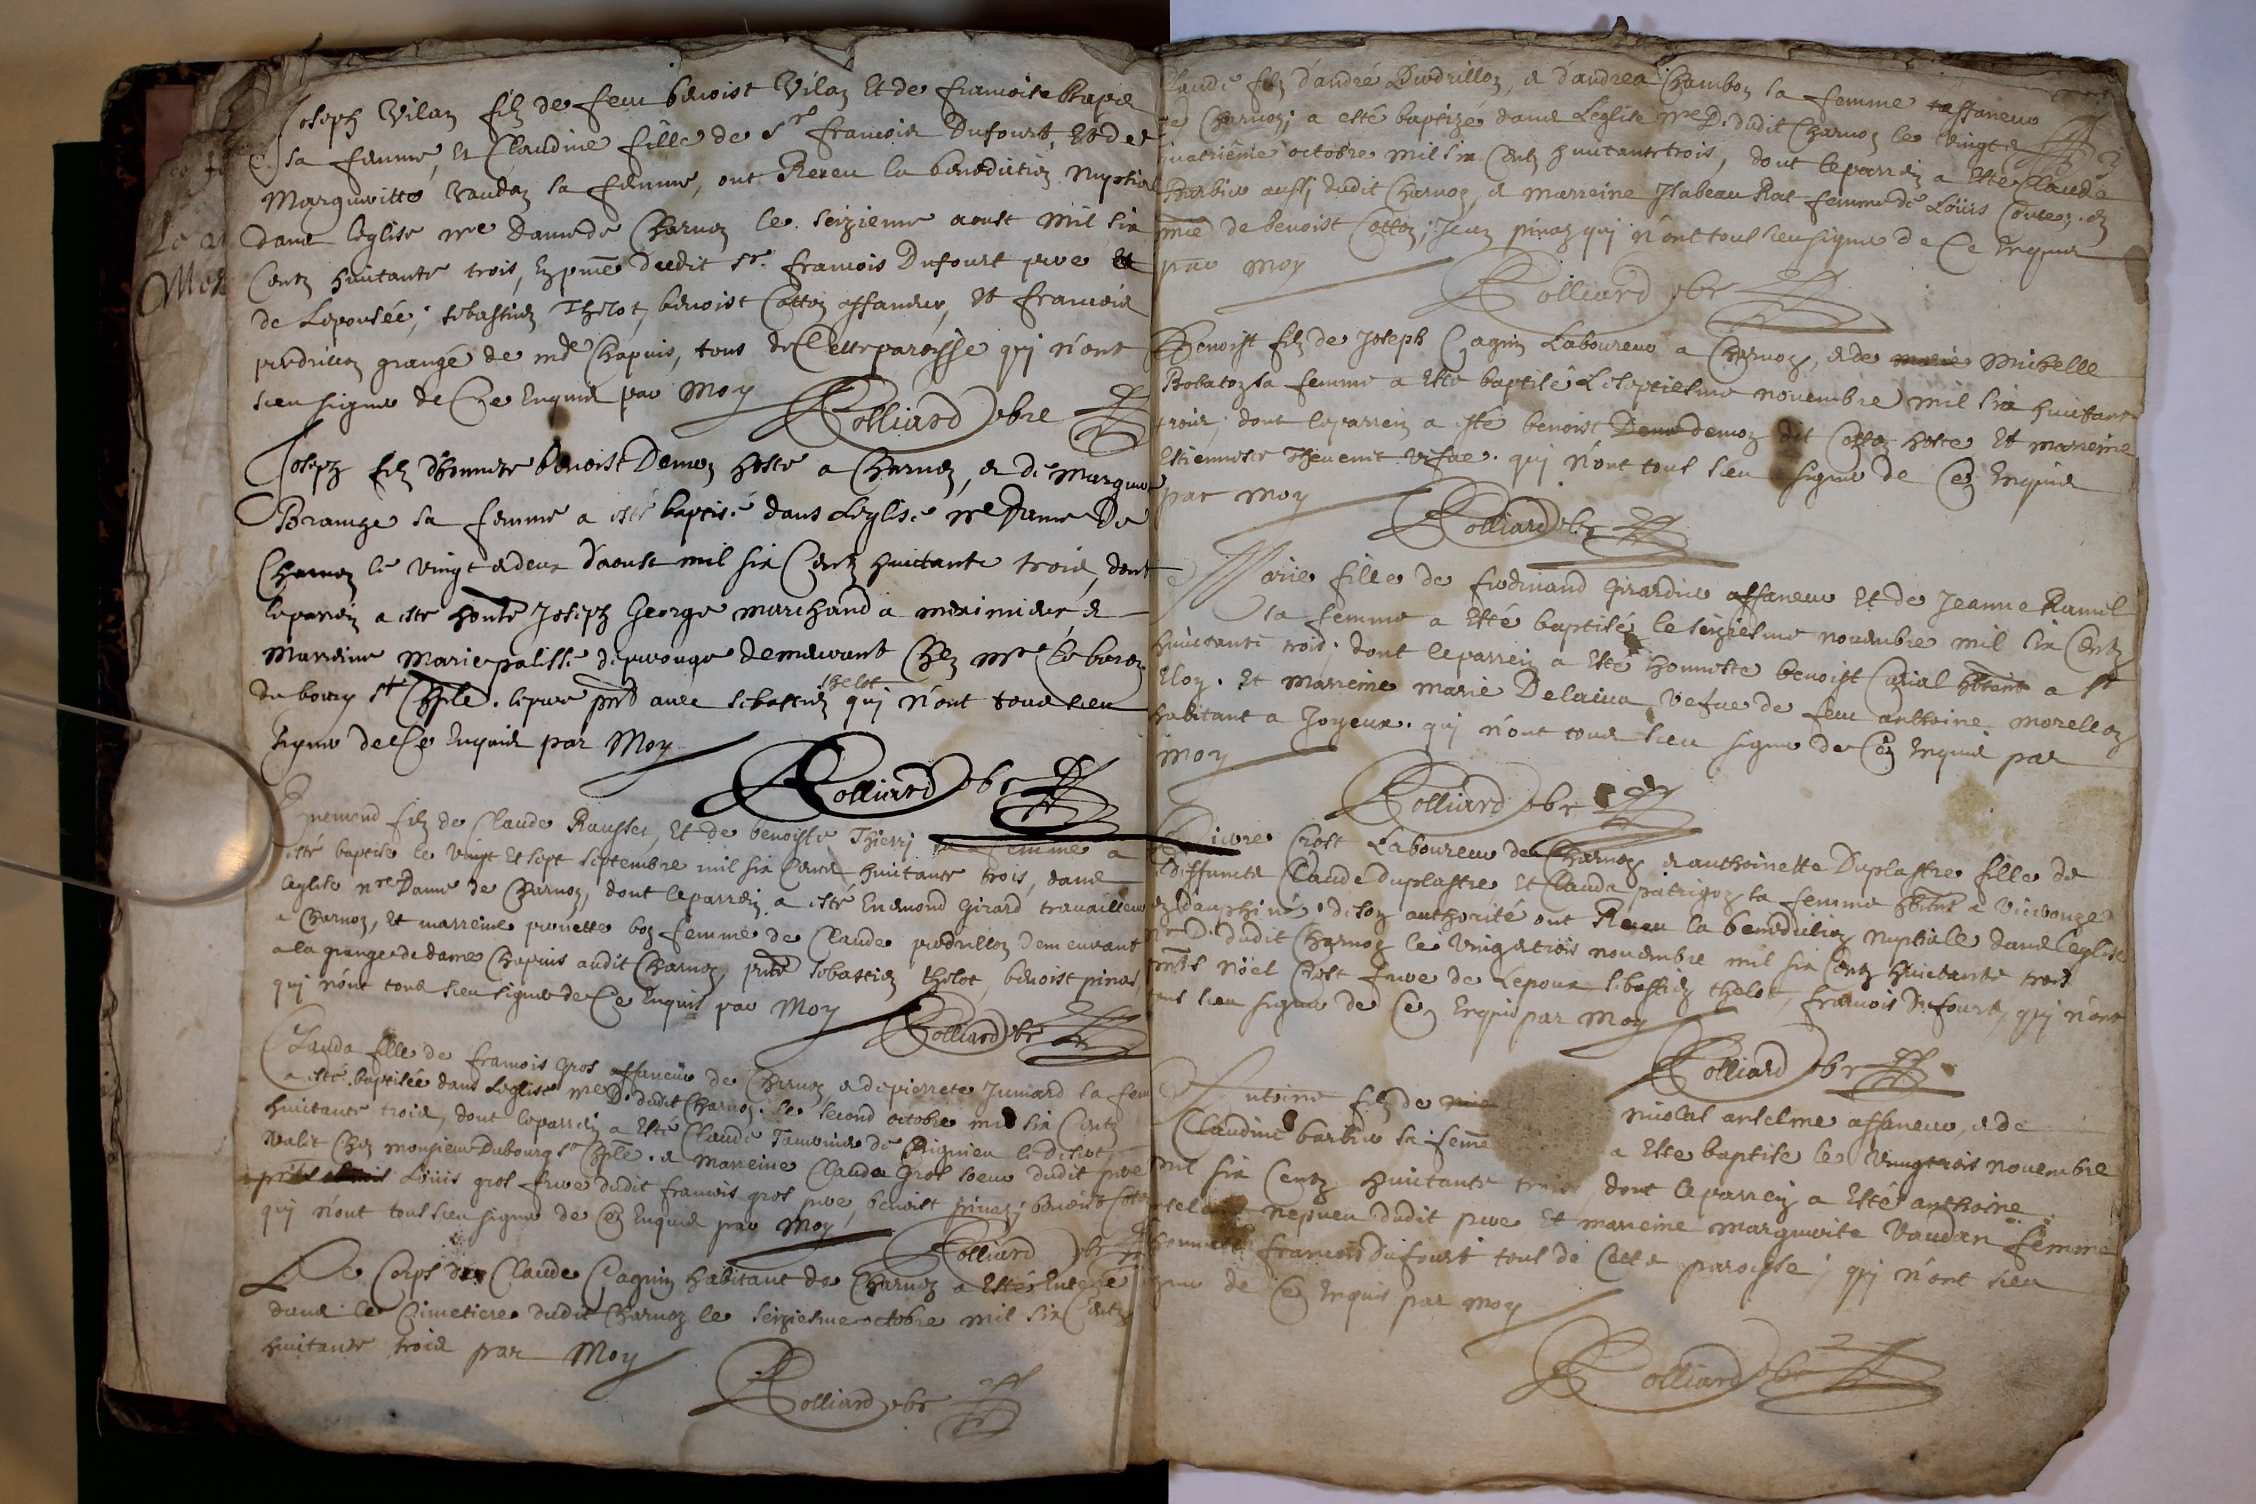 Joseph Vilan filz de feu benoist Vilan Et de francoise
sa femme, et Claudine fille de Sr francois Dufourt, Et de
Margueritte Vaudan sa femme, ont Receu la benediction Nuptial
dans leglise nre Dame de Charnoz le seizieme aoust mil six
Centz huictante trois, En pnce dudit Sr. francois Dufourt pere
de Lepousée, sebastien Thelot, benoist Cottoz affaneur, Et francois
perdrillon grangé de made Chapuis, tous de Cette paroisse qui n'ont
sceu signer de Ce Enquis par Moy
Rolliard pbre
Joseph filz d'honneste benoist Demoz hoste a Charnoz, & de Margue
sa femme a esté baptisé dans Leglise nre Dame De
Charnoz le vingt & deux d'aoust mil six Centz huictante trois, dont
le parrein a este honte Joseph George marchand a meximieux, &
Marreine Marie palisse de perouge demeurant Chez mr
du bourg St Chple. le pere pnt avec Sebastien thelot qui n'ont tous sceu
signer de Ce Enquis par Moy
Rolliard pbre
Enemond filz de Claude Rousset, Et de benoiste Thierri sa femme a
esté baptisé le vingt Et sept septembre mil six Centz huictante trois, dans
leglise nre Dame de Charnoz, dont le parrein a esté Enemond Girard travailleur
a Charnoz, Et marreine pernette boz femme de Claude perdrillon demeurant
a la grange de dame Chapuis audit Charnoz, pnts Sebastien thelot, benoist pinaz,
qui n'ont tous sceu signer de Ce Enquis par Moy
Rolliard pbre
Clauda fille de francois Gros affaneur de Charnoz & de pierrete Jumard sa fem
a esté baptisée dans Leglise nre D. dudit Charnoz le second octobre mil six Centz
huictante trois, dont le parrein a Esté Claude
valet Chez monsieur Dubourg St Chple. & Marreine Clauda Gros soeur dudit pere
Loüis gros frere dudit francois gros pere, benoist pinaz, benoist
qui n'ont tous sceu signer de Ce Enquis par Moy
Rolliard pbre
Le Corps de Claude Gagnin habitant de Charnoz a Esté Enterré
dans le Cimetiere dudit Charnoz le seiziesme octobre mil six Centz
huictante trois par Moy
Rolliard pbre
Claude filz d'andré perdrillon, & d'andrea Chambon sa femme affaneur
de Charnoz, a esté baptizé dans Leglise nre D. dudit Charnoz le vingt &
quatrieme octobre mil six Centz huictante trois, dont le parrein a Esté Claude
Barbier aussi dudit Charnoz, & marreine Isabeau Rat femme de Loüis
pnce de benoist Cottoz, Jean pinaz qui n'ont tous sceu signer de Ce Enquis
par moy
Rolliard pbre
Benoist filz de Joseph Gagnin Laboureur a Charnoz, & de Michelle
Robatoz sa femme a Esté baptisé Le septiesme novembre mil six huictante
trois, dont le parrein a esté benoist demoz dit Cottoz hoste Et marreine
Estiennette Thevenet Vefve. qui n'ont tous sceu signer de Ce Enquis
par moy
Rolliard pbre
Marie fille de ferdinand Girardier affaneur Et de Jeanne Ramel
sa femme a Esté baptisée le seiziesme novembre mil six Centz
huictante trois, dont le parrein a Esté honneste benoist habitant a St
Eloy. Et Marreine marie Vefve de feu anthoine morelloz
habitant a Joyeux. qui n'ont tous sceu signer de Ce Enquis par
moy
Rolliard pbre
Pierre Crost Laboureur de Charnoz & anthoinette Duplastre fille de
deffuncte Claude Duplastre Et Clauda sa femme
en dauphiné, de son authorité ont Receu la benediction nuptialle dans leglise
nre D. dudit Charnoz le vingt & trois novembre mil six Centz huictante trois
pnts Noël Crost frere de Lepoux, Sebastien thelot, francois Dufourt, qui n'ont
tous sceu signer de Ce Enquis par moy
Rolliard pbre
Antoine filz de nicolas anselme affaneur, & de
Claudine barbier sa feme a Esté baptisé le vingt trois novembre
mil six Centz huictante trois, dont le parrein a Esté anthoine
nepveu dudit pere Et marreine marguerite Vaudan femme
francois Dufourt tous de Cette paroisse, qui n'ont sceu
signer de Ce Enquis par moy
Rolliard pbre